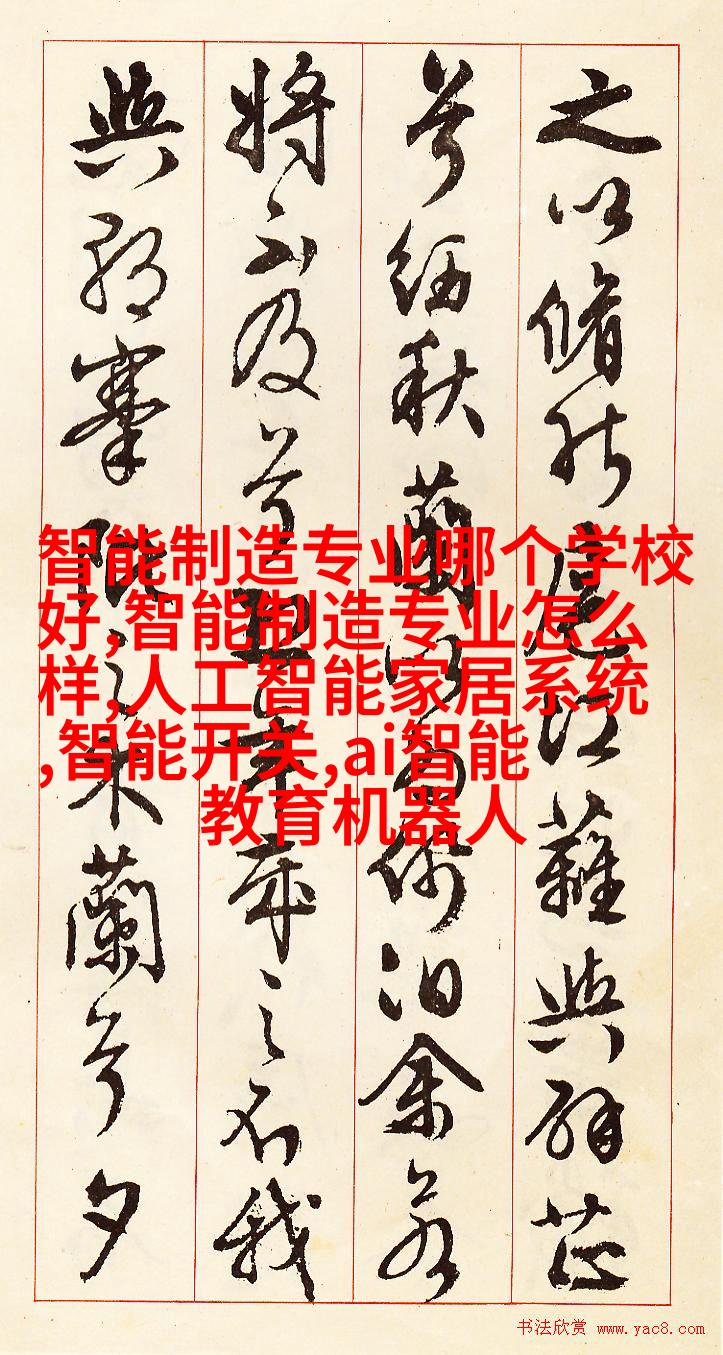 之以脩能扈江蘺與辟芷
兮紉秋蘭以為佩汩余若
將不及兮恐年歲之不我
與朝搴阰之木蘭兮夕
智能制造专业哪个学校
好,智能制造专业怎么
样,人工智能家居系统
,智能开关,ai智能
教育机器人
书法欣赏 www.yac8.com